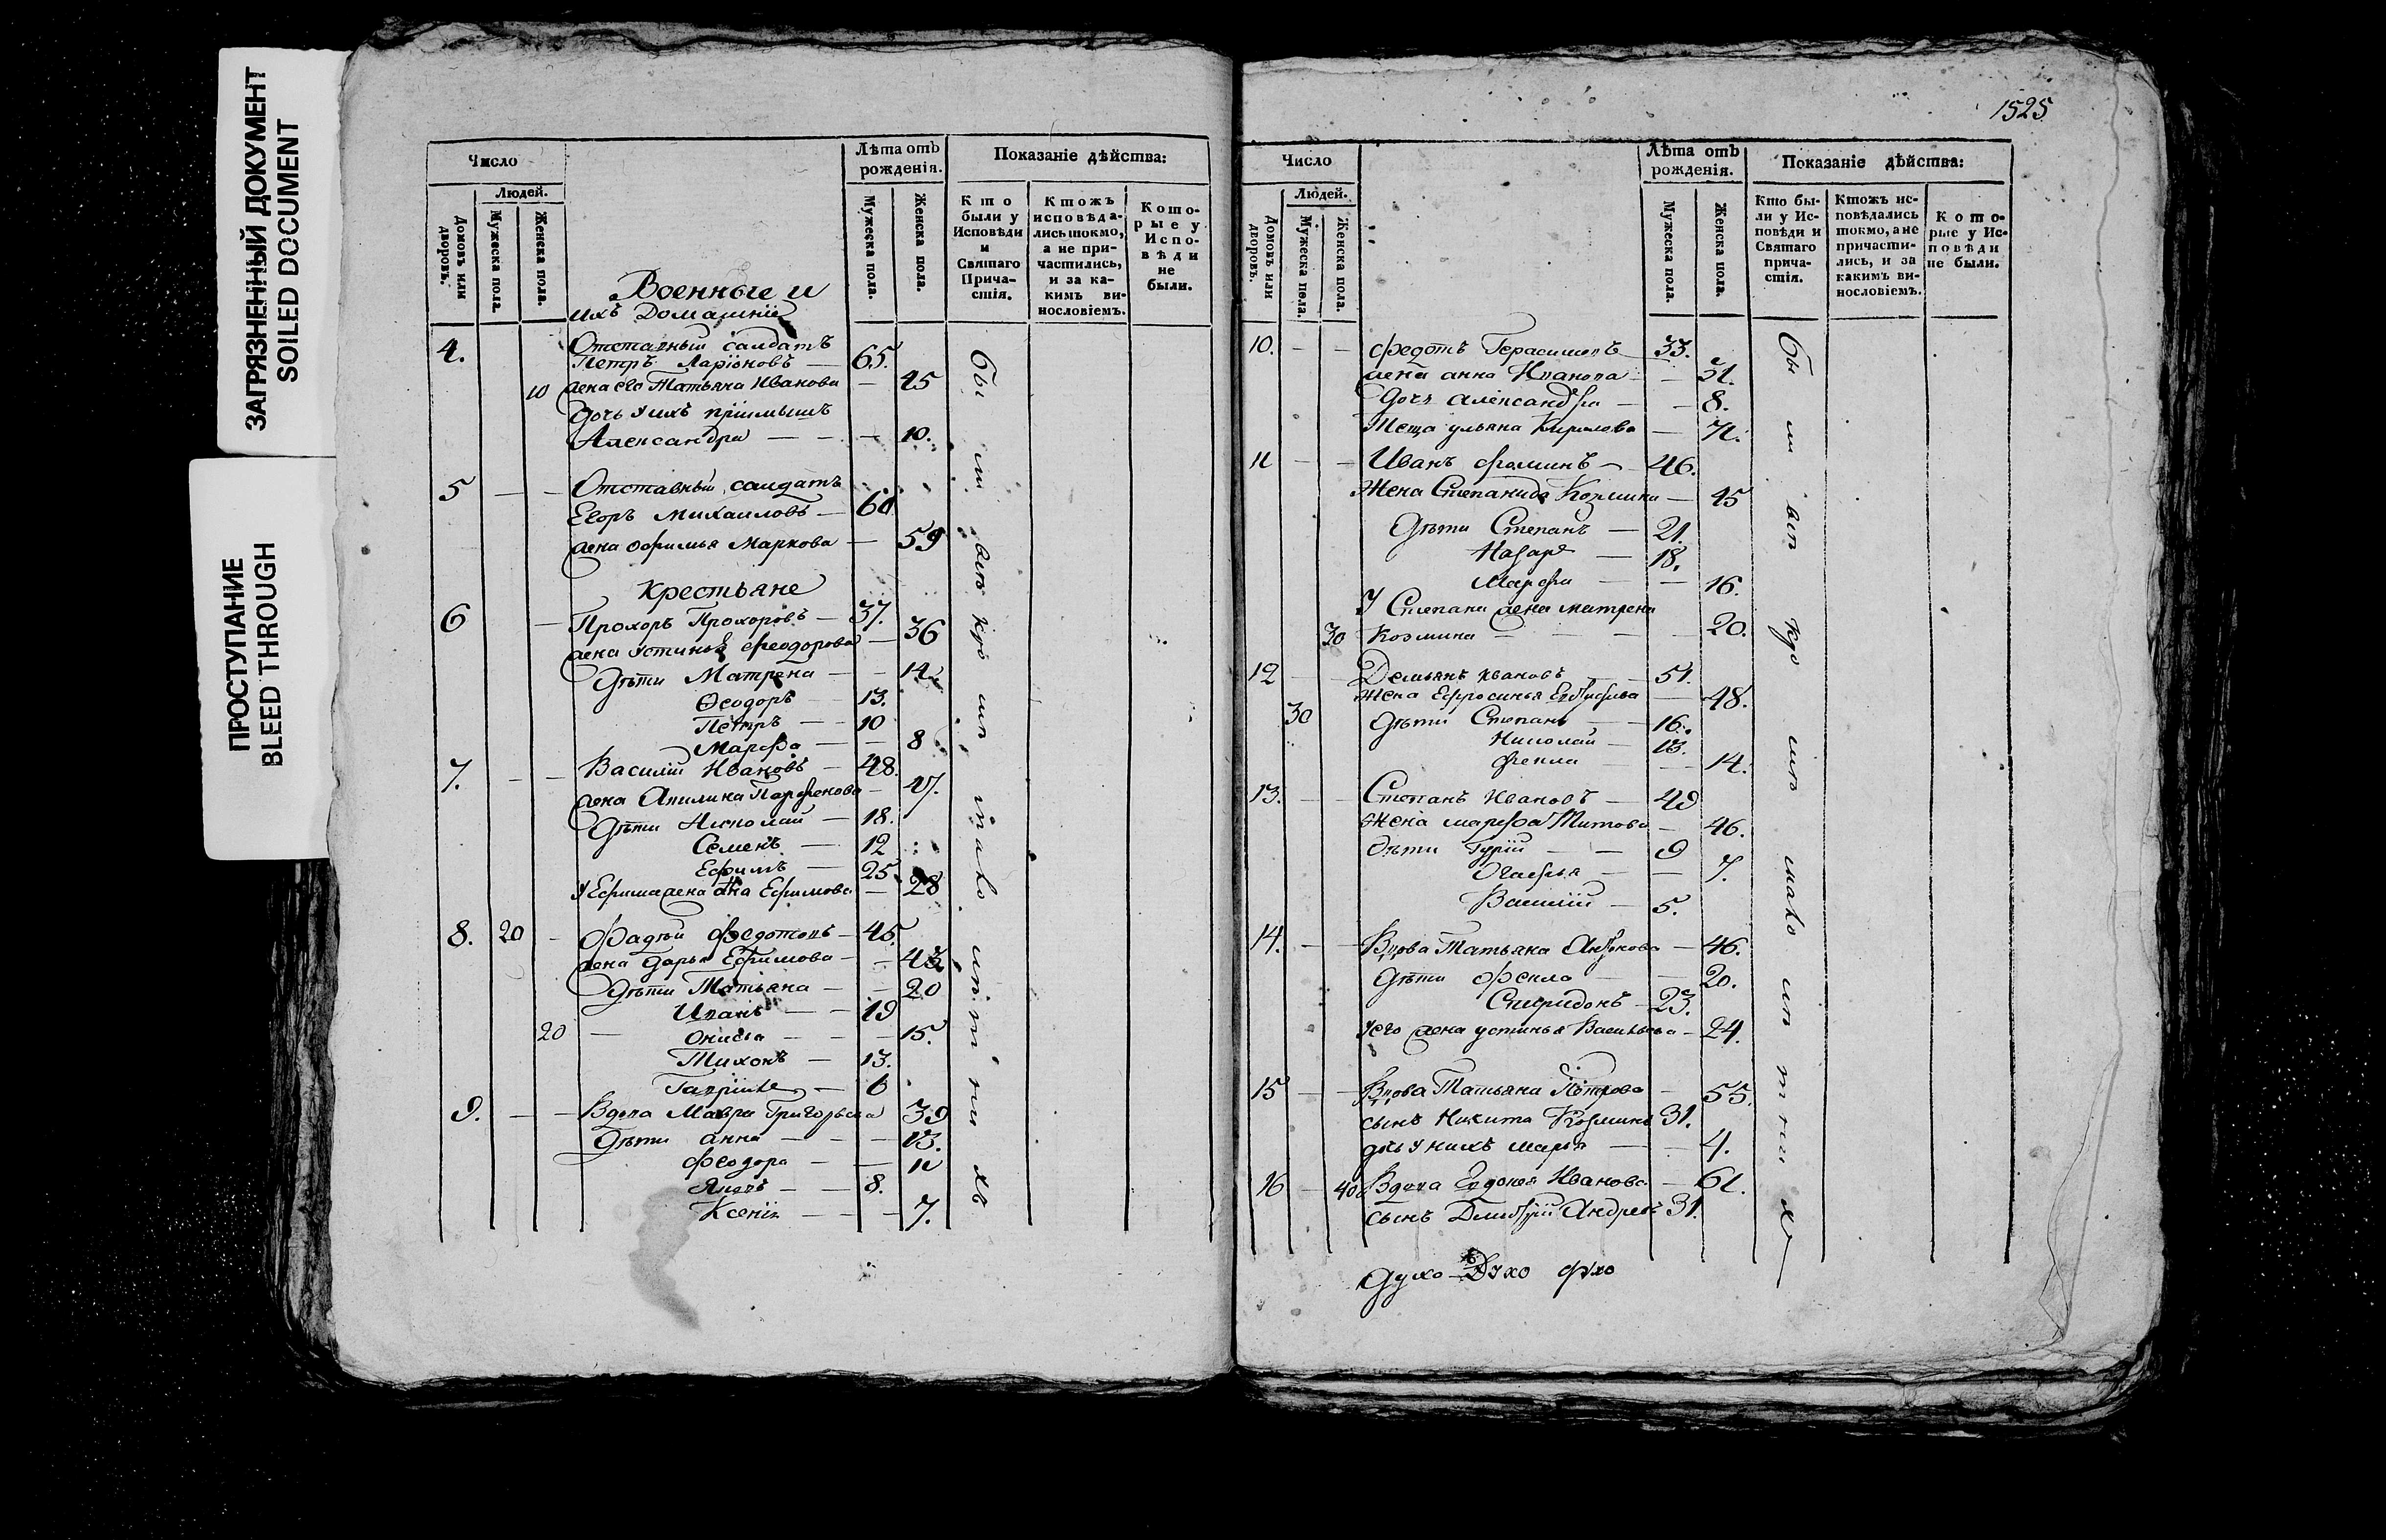 ЗАГРЯЗНЕННЫЙ ДОКУМЕНТ
SOILED DOCUMENT
ПРОСТУПАНИЕ
BLEED THROUGH
Число
Людей.
Домовъ или дворовъ.
Мужеска пола.
Женска пола.
Лѣта отъ рожденія.
Мужеска пола.
Женска пола.
Показаніе дѣйства:
Кто были у Исповѣди и Святаго Причастія.
Ктожъ исповѣдались токмо, а не причастились, и за какимъ винословіемъ.
Которые у Исповѣди не были.
Военные и
ихъ Домашніе
4. Отставный салдатъ
Петръ Ларіоновъ — 65.
10 жена его Татьяна Иванова — 45
дочь у ихъ пріимышъ
Александра — — — 10.
5 — — Отставный салдатъ
Егоръ Михаиловъ — 60
жена Офимья Маркова — 59
Крестьяне
6 — Прохоръ Прохоровъ — 37.
жена Устинья Феодорова — 36
Дѣти Матрена — — 14.
Ѳеодоръ — 13.
Петръ — 10
Марфа — — 8
7. — — Василій Ивановъ — 48.
жена Акилина Парфенова — 47.
Дѣти Николай — 18.
Семенъ — 12
Ефимъ — 25
У Ефима жена Анна Ефимова — 28
8. 20 — Фадѣй Федотовъ — 45.
жена Дарья Ефимова — — 43.
Дѣти Татьяна — — 20
Иванъ — — 19
20 — Онисья — — — 15.
Тихонъ — 13.
Гавріилъ — 6
9. — — Вдова Мавра Григорьева 39
Дѣти Анна — — — 13.
Феодора — — 10
Яковъ — — 8.
Ксенія — — — 7.
бы ли вси кро мѣ мало лѣт ни хъ
1525
Число
Людей.
Домовъ или дворовъ.
Мужеска пола.
Женска пола.
Лѣта отъ рожденія.
Мужеска пола.
Женска пола.
Показаніе дѣйства:
Кто были у Исповѣди и Святаго причастія.
Ктожъ исповѣдались токмо, а не причастились, и за какимъ винословіемъ.
Которые у Исповѣди не были.
10. — — Федотъ Герасимовъ 33.
жена Анна Иванова — — 31.
Дочь Александра — — 8.
Теща Ульяна Кирилова — 71.
11 — — Иванъ Фоминъ — 46.
Жена Степанида Козмина — 45
Дѣти Степанъ — 21.
Назаръ — 18.
Марфа — — 16.
У Степана жена Матрена
30 Козмина — — — — 20.
12 — — Демьянъ Ивановъ — 51.
Жена Ефросинья — 48.
30 Дѣти Степанъ — — 16.
Николай — 13.
Фекла — — — 14.
13. — — Степанъ Ивановъ — 49
Жена Марфа Титова — 46.
Дѣти Гурій — — 9
Агафья — — 7.
Василій — 5.
14. — — Вдова Татьяна Антонова — 46.
Дѣти Фекла — — 20.
Спиридонъ — 23.
у его жена Устинья Васильева — 24.
15 — — Вдова Татьяна Петрова — 55.
сынъ Никита Козминъ 31.
дочь у нихъ Марья — — 4.
16 — 40 Вдова Евдокея Иванова — 61.
сынъ Дмитрій Андреевъ 31.
бы ли вси кро мѣ мало лѣ т ни хъ